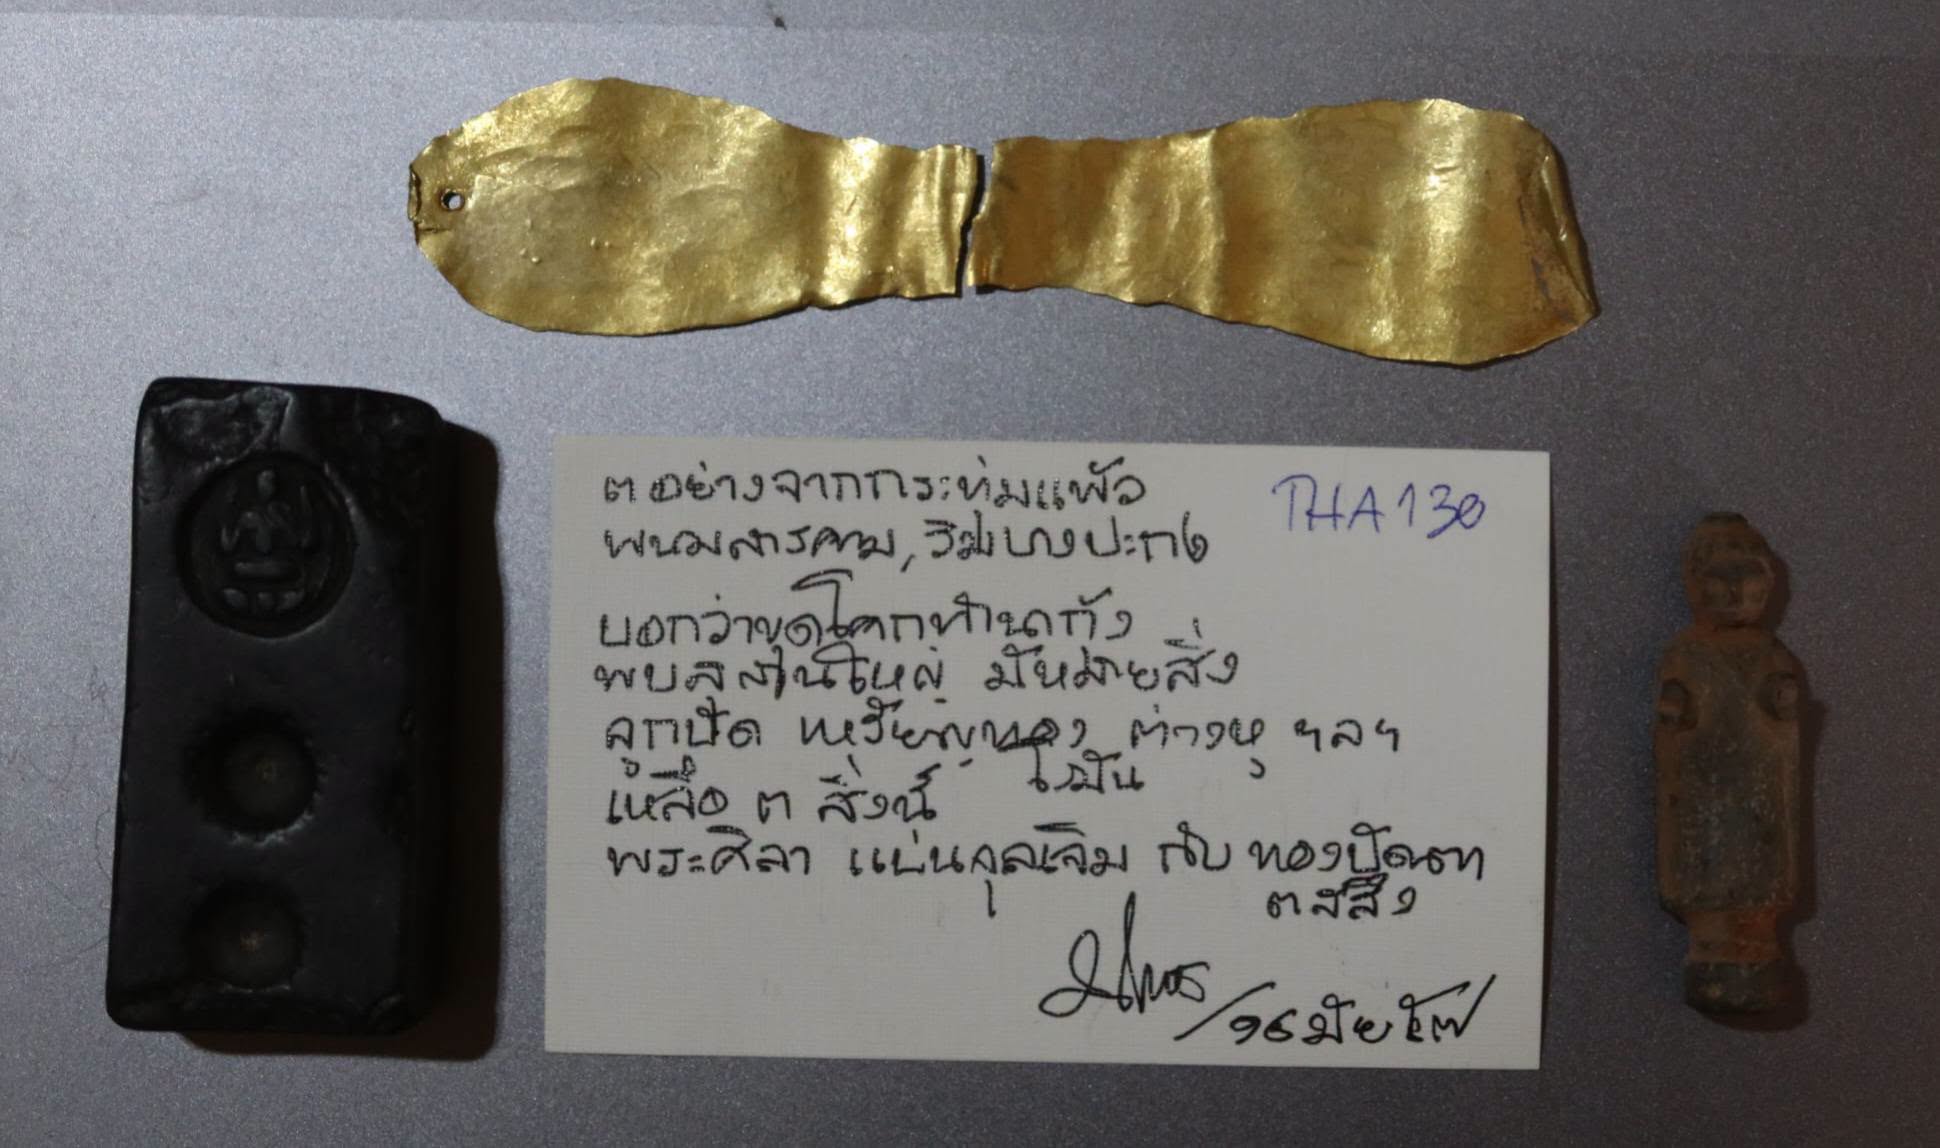 ๓ อย่างจากกระทุ่มแพ้ว THA 130
พนมสารคาม, ริมบางปะกง
บอกว่าขุดโคก
พบสุสานใหญ่ มีหลายสิ่ง
ลูกปัด เหรียญทอง ต่างหู ฯลฯ
เหลือ ๓ สิ่งนี้ โรมัน
พระศิลา แม่นกุลเจิม กับ ทองปิดตา
๓ สิ่ง